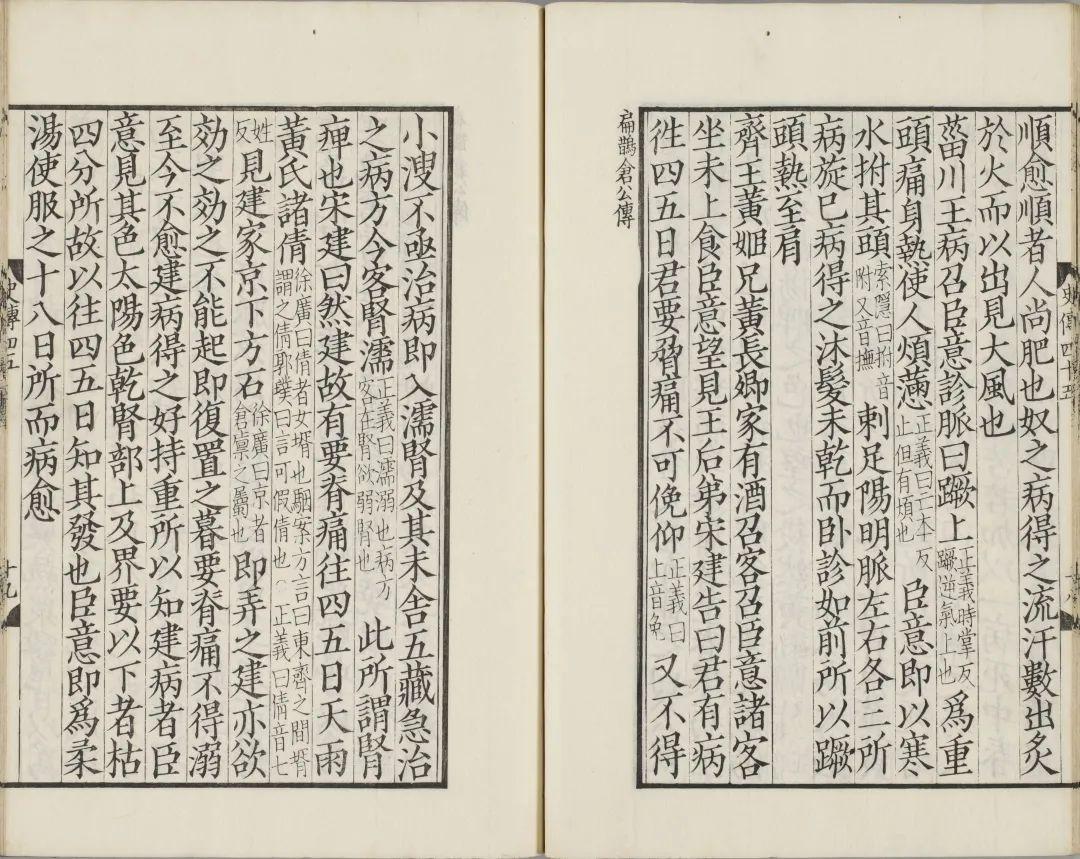 順愈順者人尚肥也奴之病得之流汗數出灸
於火而以出見大風也
菑川王病召臣意診脈曰蹶上正義時掌反蹶逆氣上也為重
頭痛身熱使人煩懣正義曰亡本反止但有煩也臣意即以寒
水拊其頭索隱曰拊音附又音撫刺足陽明脈左右各三所
病旋已病得之沐髮未乾而卧診如前所以蹶
頭熱至肩
齊王黃姬兄黃長卿家有酒召客召臣意諸客
坐未上食臣意望見王后弟宋建告曰君有病
徃四五日君要脅痛不可俛仰正義曰上音免又不得
扁鵲倉公傳
小溲不亟治病即入濡腎及其未舍五藏急治
之病方今客腎濡正義曰濡溺也病方客在腎欲弱腎也此所謂腎
痺也宋建曰然建故有要脊痛往四五日天雨
黃氏諸倩徐廣曰倩者女壻也駰案方言曰東齊之間壻謂之倩郭璞曰言可假倩也○正義曰倩音七
姓反見建家京下方石徐廣曰京者倉廩之屬也即弄之建亦欲
効之効之不能起即復置之暮要脊痛不得溺
至今不愈建病得之好持重所以知建病者臣
意見其色太陽色乾腎部上及界要以下者枯
四分所故以往四五日知其發也臣意即爲柔
湯使服之十八日所而病愈
史傳四五
十九